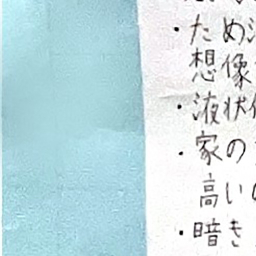 ・ため
想像
・液状
・家の
高い
・暗き